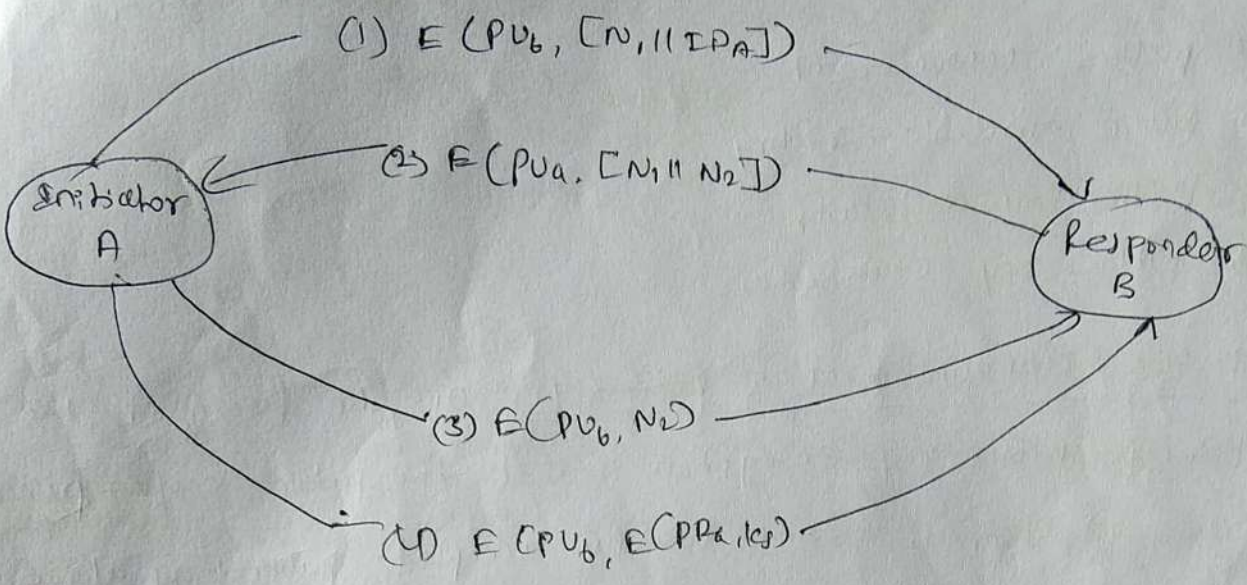 (1) E (PUb, [N1 || IDA])
(2) E (PUa, [N1 || N2])
Initiator
A
Responder
B
(3) E(PUb, N2)
(4) E (PUb, E(PRa, ks)